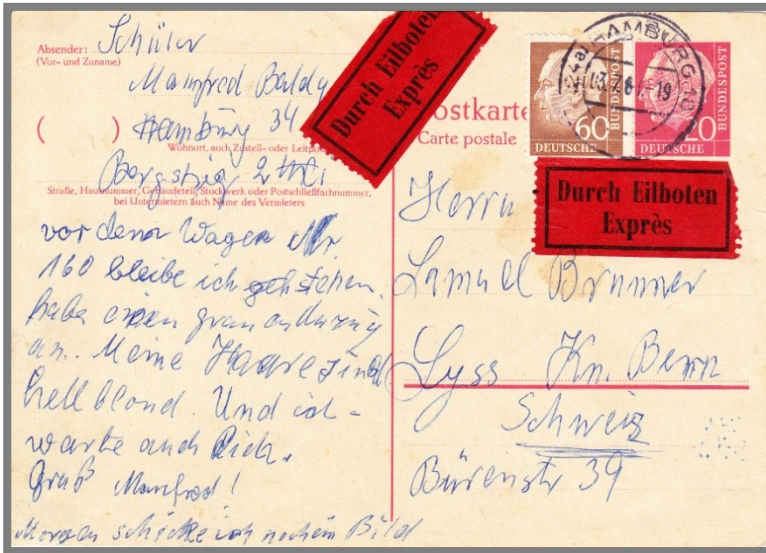 Absender:
(Vor- und Zuname)
Schüler
Manfred Baldy
Hamburg 34
Wohnort, auch Zustell- oder
2
Straße, Hausnummer, Gebäudeteil, Stockwerk oder Postschließfachnummer,
bei Untermietern auch Name des Vermieters
vor dem Wagen Nr
160 bleibe ich stehen.
habe einen grauen anzug
an. Meine Haare sind
hell blond. Und ich
warte auch Dich.
Gruß Manfred!
Morgen schicke ich noch ein Bild
Durch Eilboten
Exprès
Postkarte
Carte postale
60
DEUTSCHE
BUNDESPOST
HAMBURG
20
DEUTSCHE
BUNDESPOST
Durch Eilboten
Exprès
Herrn
Samuel Brunner
Lyss Kn. Bern
Schweiz
Bürenstr 39